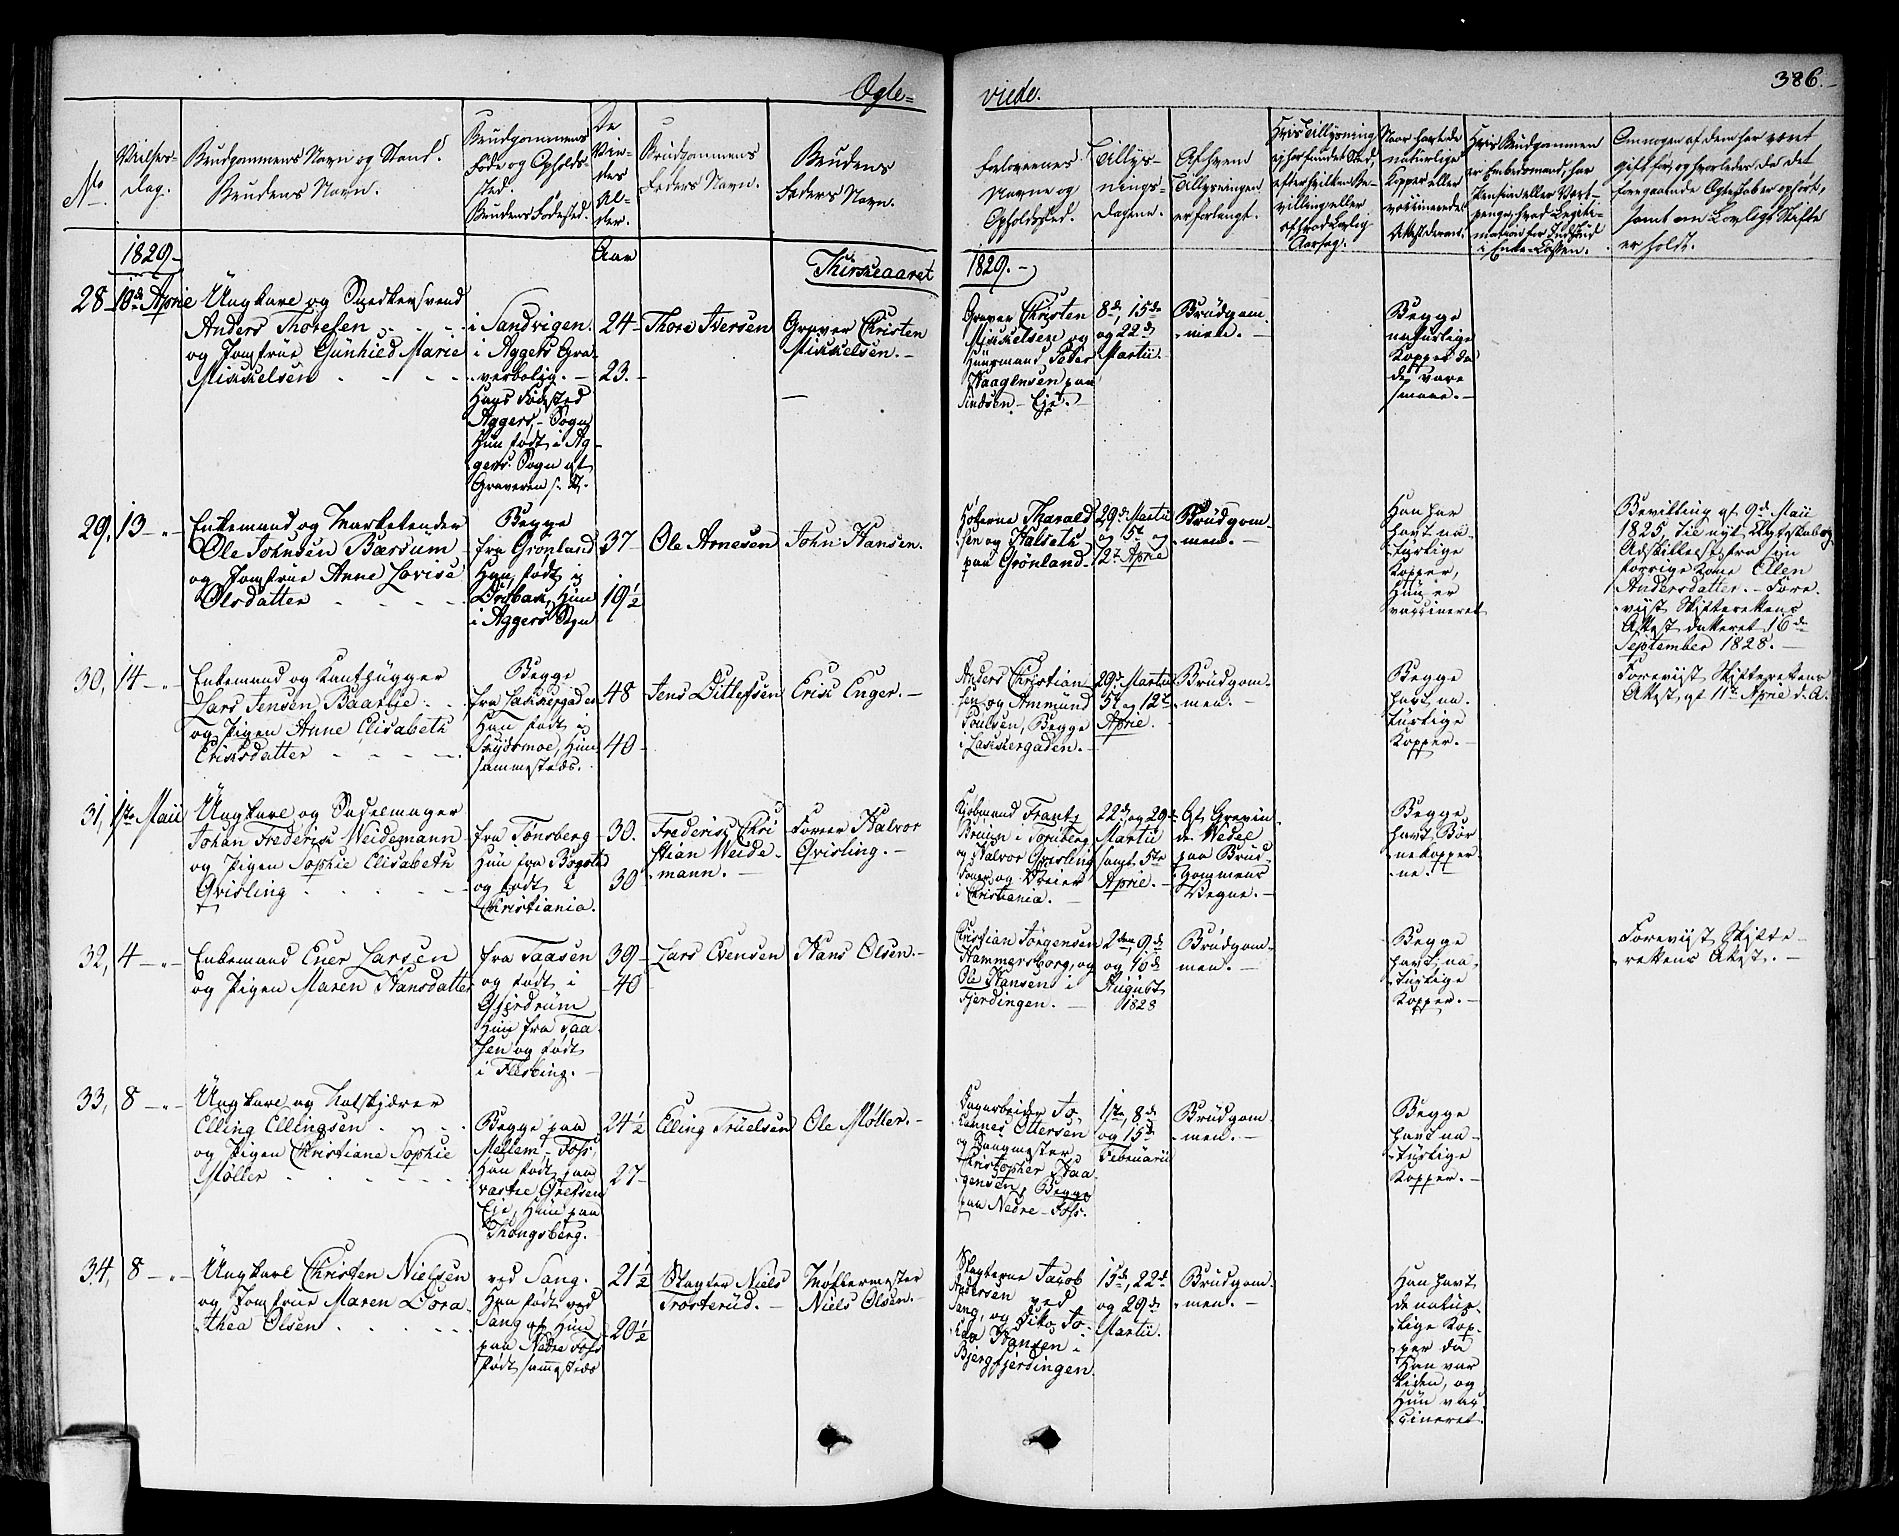 Ægte-
viede.
386.
No.
Vielses-
dag.
Brudgommens Navn og Stand.
Brudens Navn.
Brudgommens
Føde og Opholds-
sted.
Brudens Fødested.
De
Vie-
des
Al-
der.
Brudgommens
Faders Navn.
Brudens
Faders Navn.
Forlovernes
Navne og
Opholdssted.
Tillys-
nings-
dagene.
Af hvem
Tillysningen
er forlangt.
Hvis Tillysning
ej har fundet Sted,
efter hvilken Be-
villing eller
af hvad Lovlig
Aarsag.
Naar havt de
naturlige
Kopper eller
vaccinerede
Attesterans.
Hvis Brudgommen
er Embedsmand, har
Pension eller Vart-
penge, hvad Legiti-
mation for Indskud
i Enke-Cassen.
Om nogen af dem har været
gift før, og hvorledes da det
foregaaende Ægteskab er ophørt,
samt om Lovligt Skifte
er holdt.
1829.
Aar
1829.
28
10de April
Ungkarl og Snedkersvend
Anders Thoresen
og Jomfrue Gunhild Marie
Mikkelsen
i Sandvigen.
i Aggers Gra-
verbolig.
Hans Fødested
Aggers-Sogn
Hun født i Ag-
gers Sogn af
Graveren s. st.
24
23.
Thore Iversen
Graver Christen
Mikkelsen.
Graver Christen
Mikkelsen og
Huusmand Peder
Haagensen paa
Eje.
8de, 15de
og 22de
Martii
Brudgom-
men.
Begge
naturlige
Kopper da
de vare
smaae.
29,
13
Enkemand og Marketender
Ole Johnsen Bærsum
og Jomfrue Anne Lovise
Olsdatter
Begge
fra Grønland
Han født i
Hun
i Aggers Sogn
37
19½
Ole Arnesen
John Hansen.
Høkerne Tharald-
sen og Halseth
paa Grønland.
29de Martii
og 5te og
12te April
Brudgom-
men.
Han har
havt na-
turlige
Kopper,
Hun er
vaccineret
Bevilling af 9de Maii
1825, til nyt Ægteskab og
Adskillelse fra sin
forrige Kone Ellen
Andersdatter. - Fore-
viist Skifterettens
Attest datteret 16de
September 1828.
30,
14
Enkemand og Kanthugger
Lars Jensen Baatlie
og Pigen Anne Elisabeth
Eriksdatter
Begge
fra Lakkergaden
Han født i
Skydsmoe, Hun
sammesteds.
48
40
Jens Ditlefsen
Erik Enger.
Anders Christian-
sen og Ammund
Poulsen, Begge
i Lakkergaden.
29de Martii
5te og 12te
April.
Brudgom-
men.
Begge
havt na-
turlige
Kopper.
Foreviist Skifterettens
Attest af 11te April d. A.
31,
1ste Maii
Ungkarl og Sadelmager
Johan Frederik Weidemann
og Pigen Sophie Elisabeth
Qvisling
fra Tønsberg
Hun fra Bogstad
og født i
Christiania.
30.
30
Frederik Chri-
stian Weide-
mann.
Forer Halvor
Qvisling.
Kjøbmand Frantz
Bruun i Tønsberg
og Halvor Qvisling
Forer og Veier
i Christiania.
22de og 29de
Martii
samt 5te
April.
Af Grevin-
de Wedel
paa Brud-
gommens
Vegne.
Begge
havt Bør-
nekopper-
ne.
32,
4
Enkemand Ener Larsen
og Pigen Maren Hansdatter
fra Taasen
og født i
Gjerdrum
Hun fra Taa-
sen og født
i Flesberg.
39
40
Lars Evensen
Hans Olsen.
Christian Jørgensen
Hammersborg, og
Ole Hansen i
Fjerdingen.
2den, 9de
og 10de
August
1828
Brudgom-
men.
Begge
havt na-
turlige
Kopper.
Foreviist Skifte-
rettens Attest.
33,
8
Ungkarl og
Elling Ellingsen
og Pigen Christiane Sophie
Møller
Begge paa
Mellem-Foss
Han født paa
vastre Grefsen
Eje, Hun paa
Thongsberg.
24½
27
Elling Truelsen
Ole Møller.
Dagarbeider Jo-
hannes Ottersen
og Baugmester
Christopher Haa-
gensen, Begge
paa Nedre-Foss.
1ste, 8de
og 15de
Februarii
Brudgom-
men.
Begge
havt na-
turlige
Kopper.
34,
8
Ungkarl Christen Nielsen
og Jomfrue Maren Dora-
thea Olsen
ved Sang.
Han født ved
Sang og Hun
paa Nedre Foss
født sammesteds
21½
20½
Slagter Niels
Trosterud.
Møllermester
Niels Olsen.
Slagterne Jacob
Andersen ved
Sang, og
Hansen i
Bjergfjerdingen.
15de, 22de
og 29de
Martii.
Brudgom-
men.
Han havt
de natur-
lige Kop-
per da
Han var
liden, og
Hun vac-
cineret.